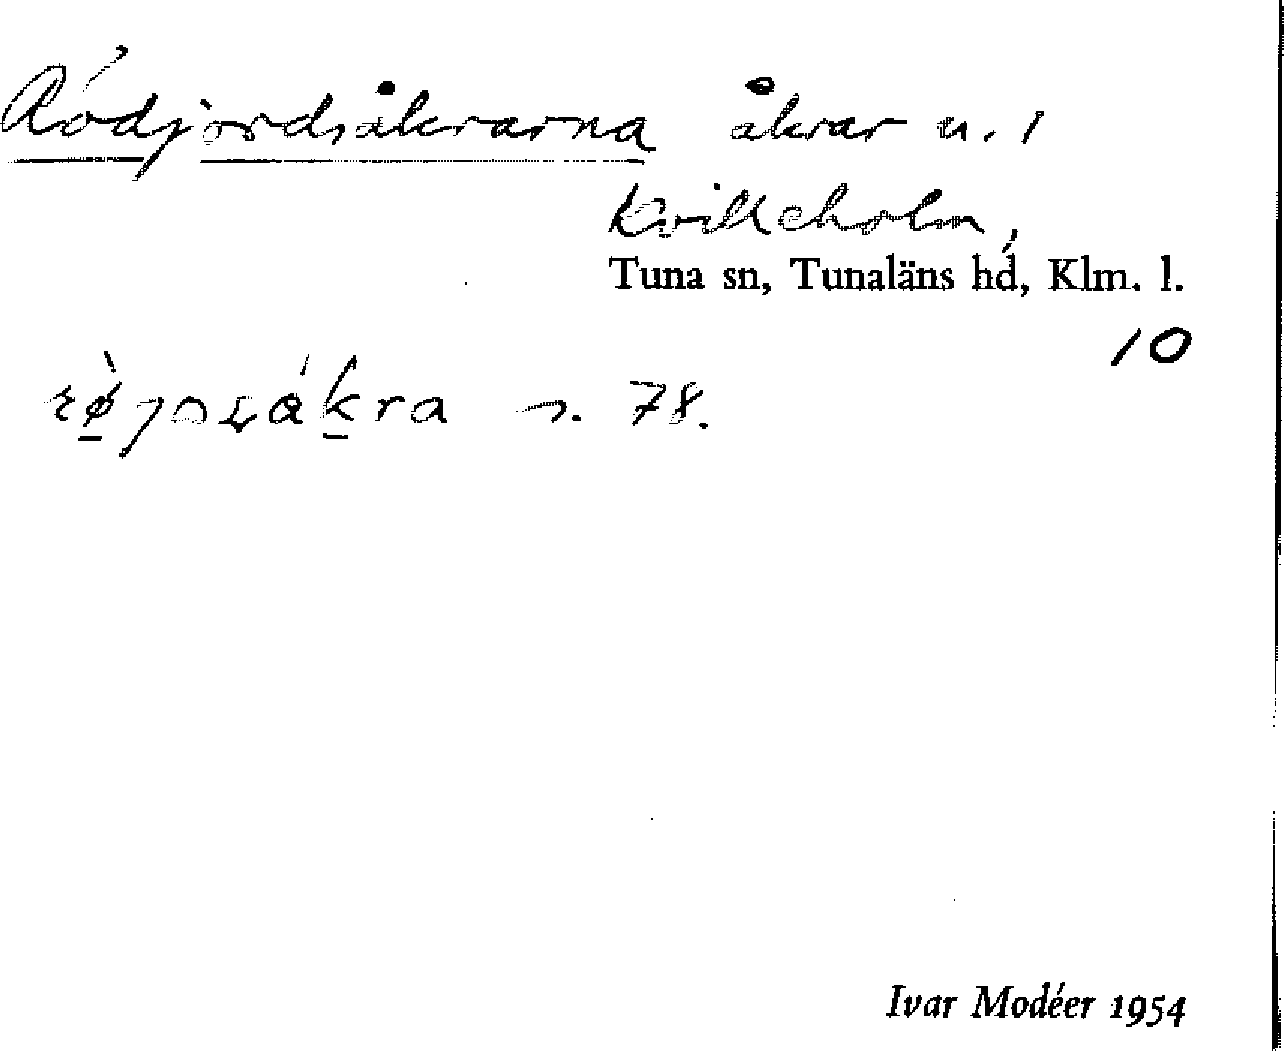 Rödjordsåkrarna åkrar u. 1
Kvilleholm,
Tuna sn, Tunaläns hd, Klm. l.
10
s. 78.
Ivar Modéer 1954